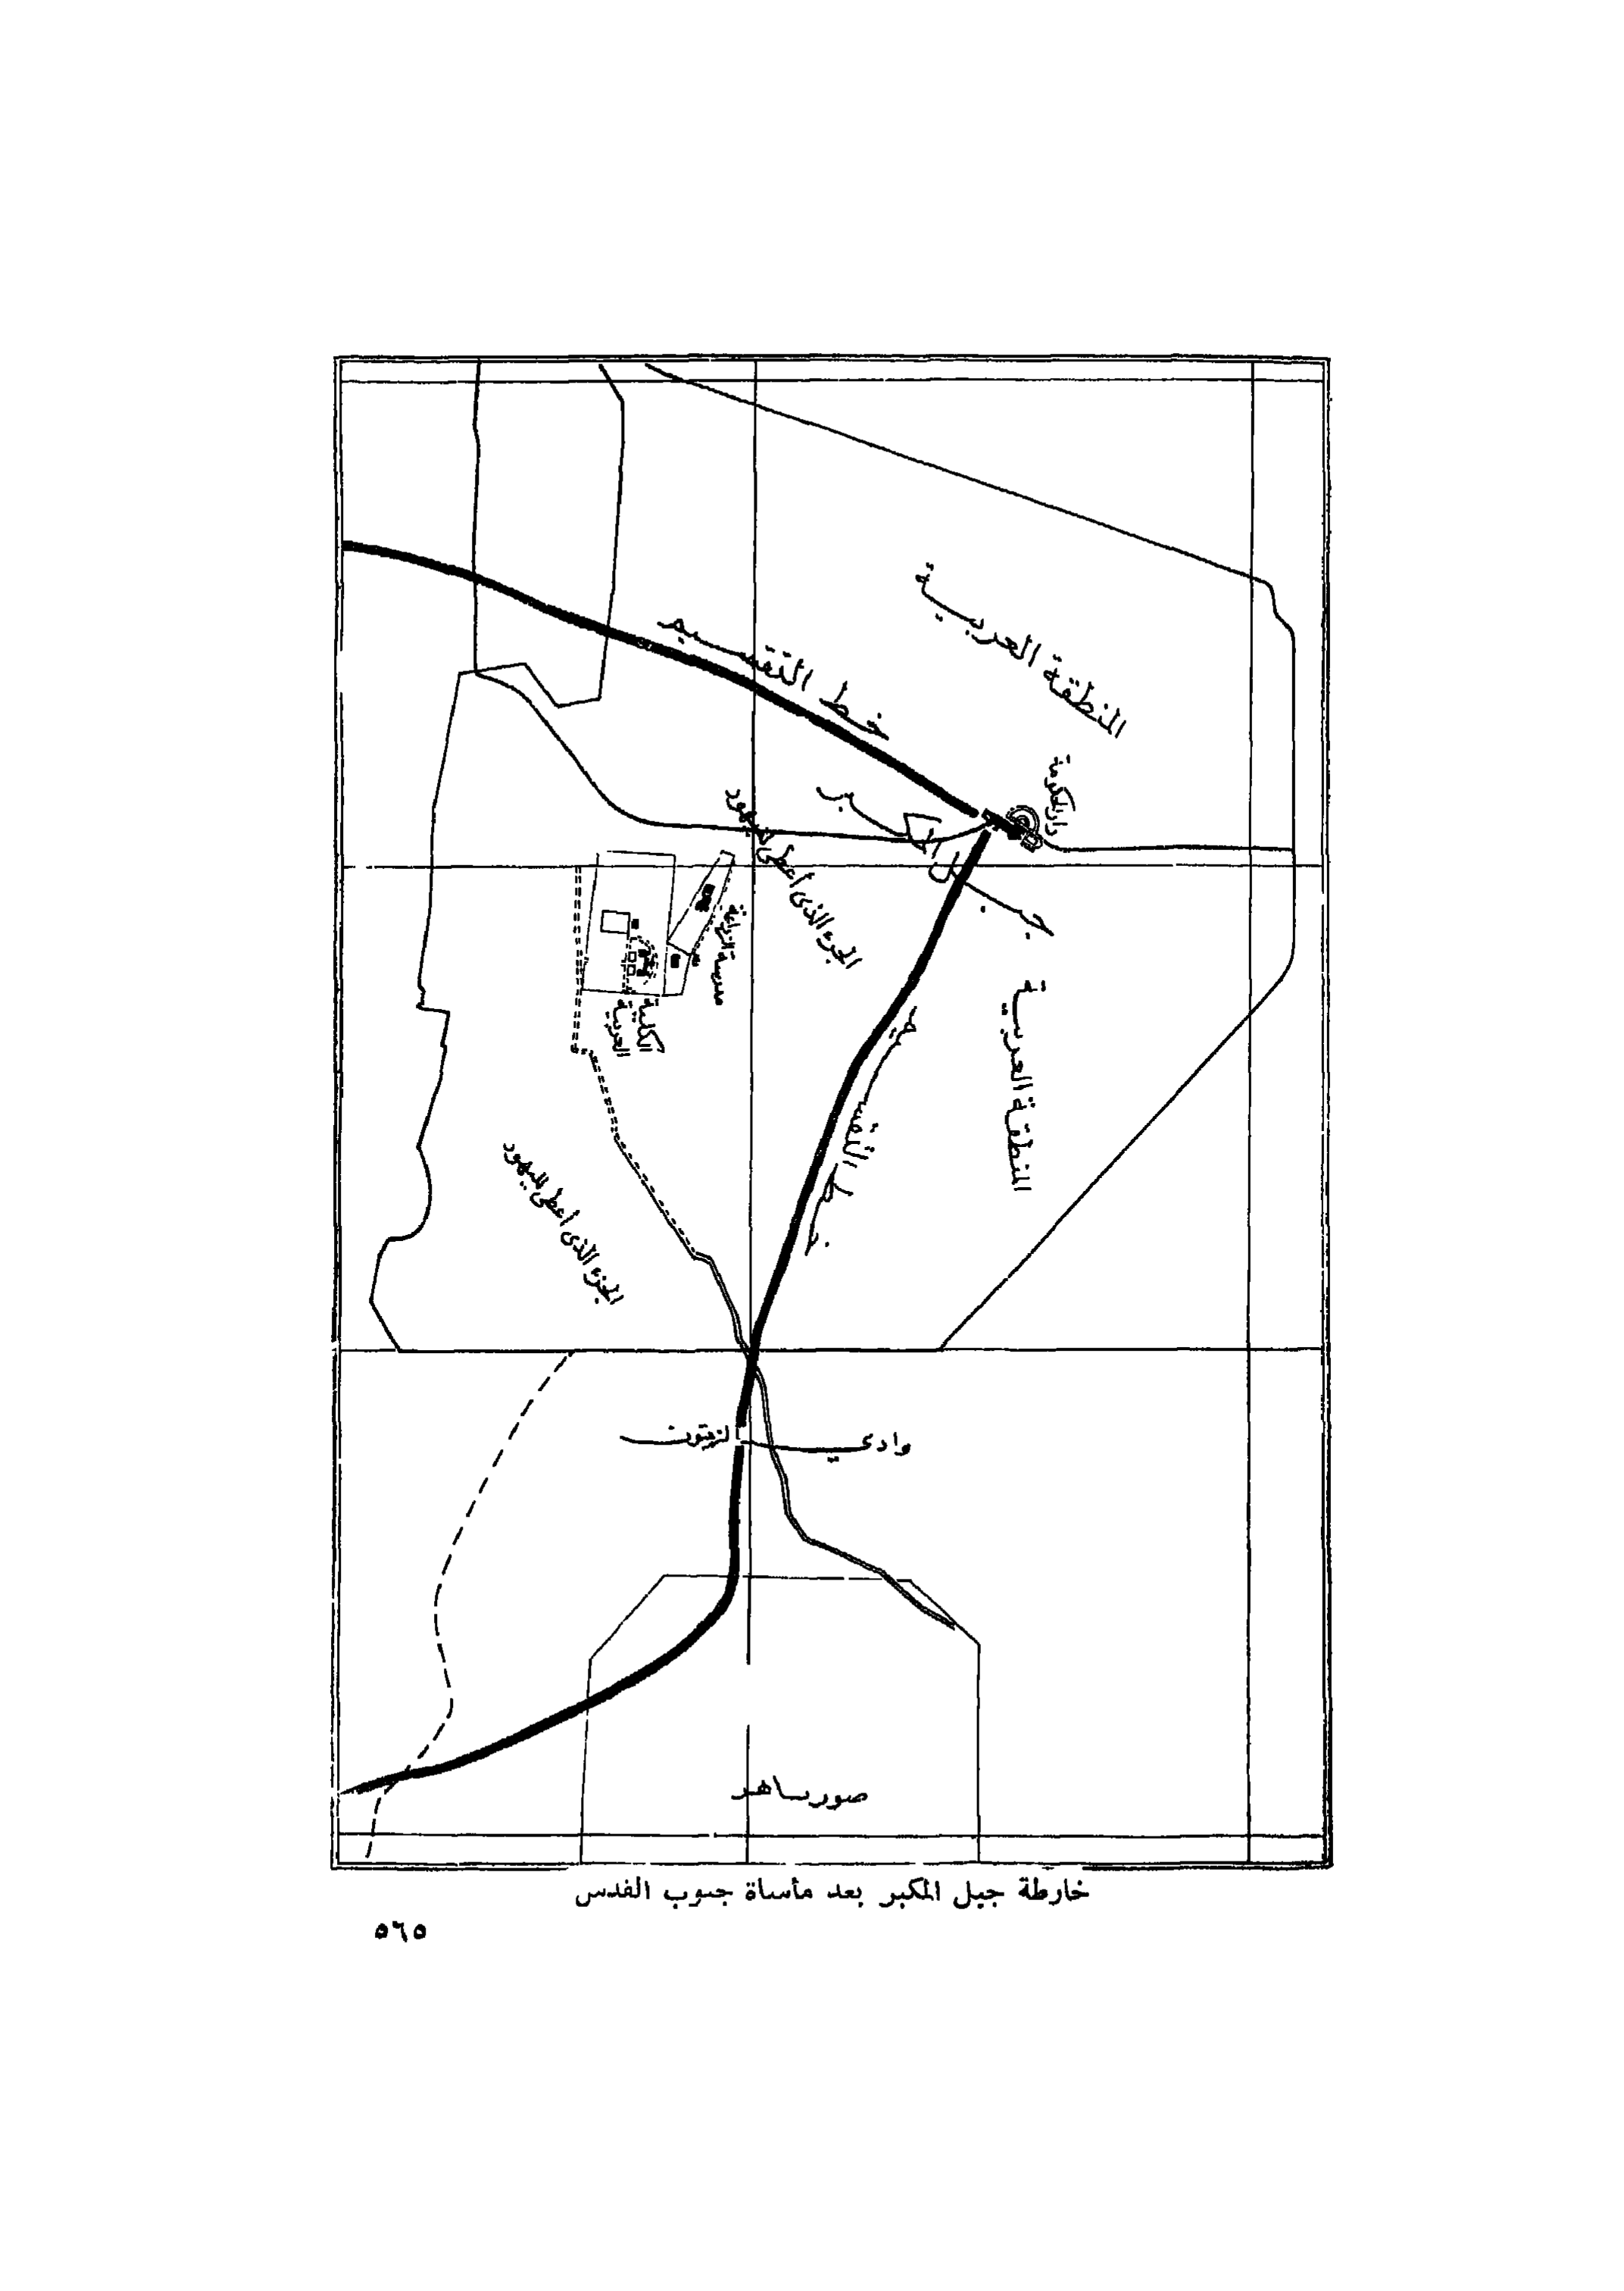 المنطقة العربية
خط التقسيم
دار الحكومة
جبل المكبر
الجزء الذى أعطى لليهود
مدرسة الزراعة
الكلية
العربية
المنطقة العربية
خط التقسيم
الجزء الذى أعطى لليهود
وادي الزيتون
صور ساهر
خارطة جبل المكبر بعد مأساة جنوب القدس
٥٦٥